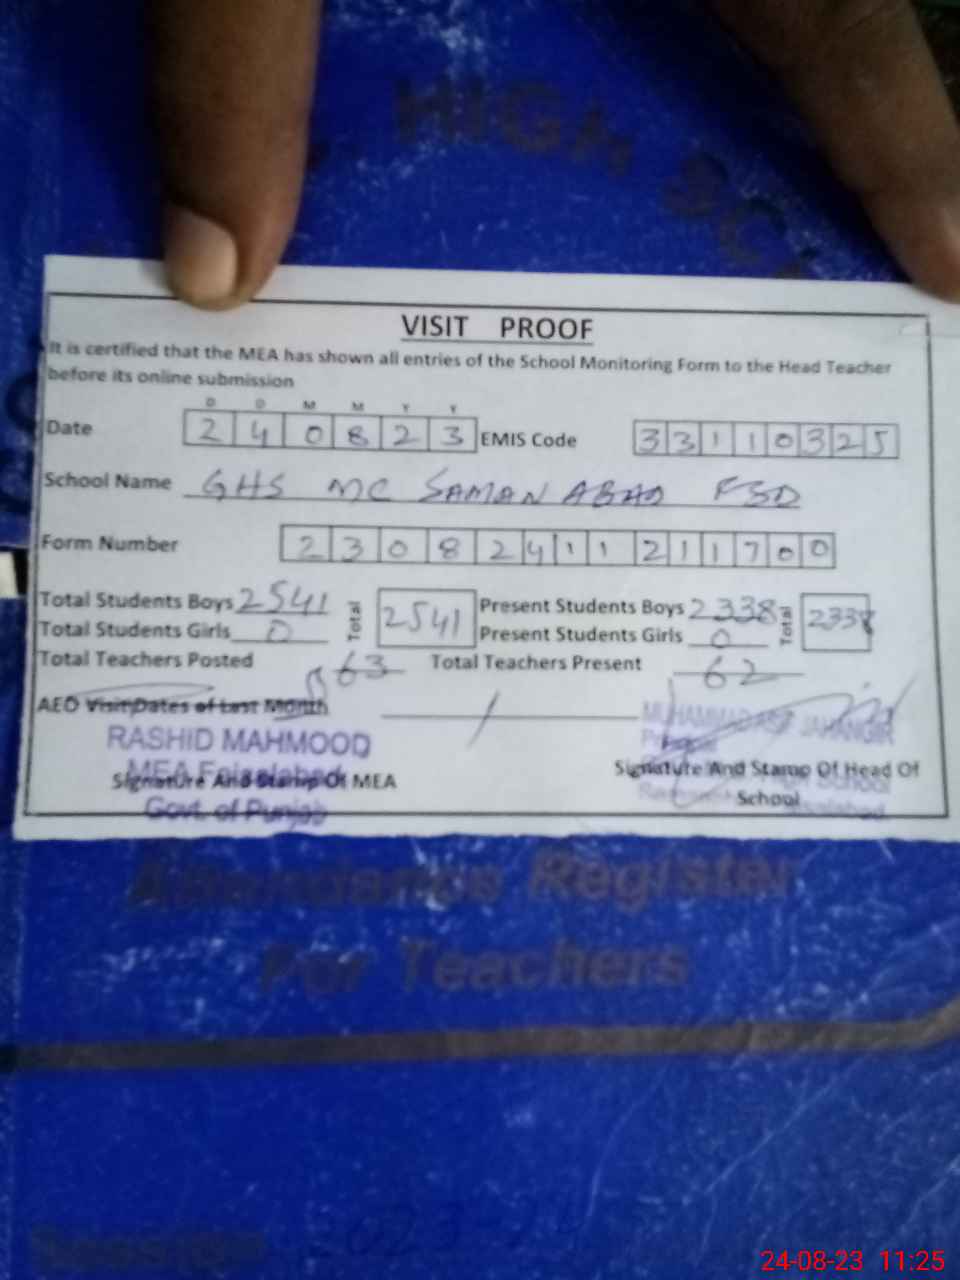 HIGH SC
VISIT PROOF
It is certified that the MEA has shown all entries of the School Monitoring Form to the Head Teacher
before its online submission
D D M M Y Y
Date 2 4 0 8 2 3 EMIS Code 3 3 1 1 0 3 2 5
School Name GHS MC SAMAN ABAD FSD
Form Number 2 3 0 8 2 4 1 1 2 1 1 7 0 0
Total Students Boys 2541 Total 2541 Present Students Boys 2338 Total 2338
Total Students Girls 0 Present Students Girls 0
Total Teachers Posted 63 Total Teachers Present 62
AEO Visit Dates of Last Month /
RASHID MAHMOOD
MEA Faisalabad
Govt. of Punjab
Signature And Stamp Of MEA
MUHAMMAD JAHANGIR
Principal
School
Signature And Stamp Of Head Of
School
Attendance Register
For Teachers
24-08-23 11:25